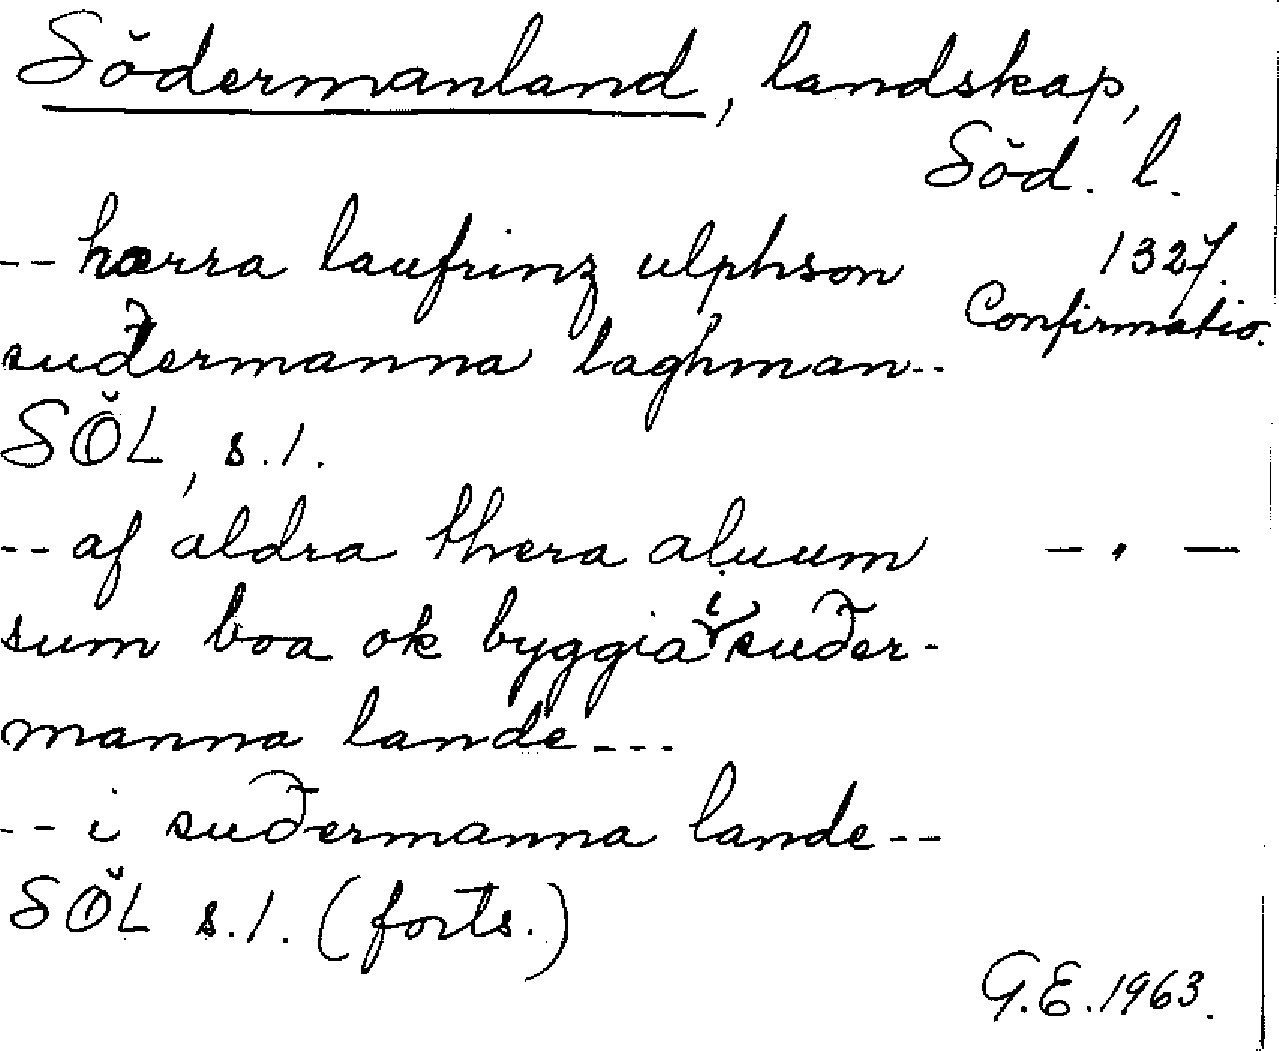 Södermanland, landskap,
Söd. l.
-- hærra laufrinz ulphson 1327.
Confirmatio.
suðermanna laghman--
SÖL, s. 1.
-- af aldra thera aluum — " —
sum boa ok byggia i suðer-
manna lande ---
-- i suðermanna lande --
SÖL s. 1. (forts.)
G.E. 1963.